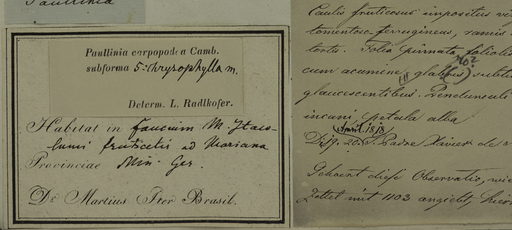 Paullinia
Paullinia carpopodea Camb.
subforma 5: chrysophylla m.
Determ. L. Radlkofer.
Habitat in faucium M. Itaco-
lumi fruticetis ad Mariana
Provinciae Min. Ger.
Dr Martius Iter Brasil.
Caulis fruticosus
tomentoso-ferrugineus, ramis
Folia pinnata, foliolis
cum acumine glabris
glaucescentibus. Pedunculi
incani petala alba
April 1818
Padre Xavier
Scheint diese Observatio, wie
Zettel mit 1103 angiebt, hier